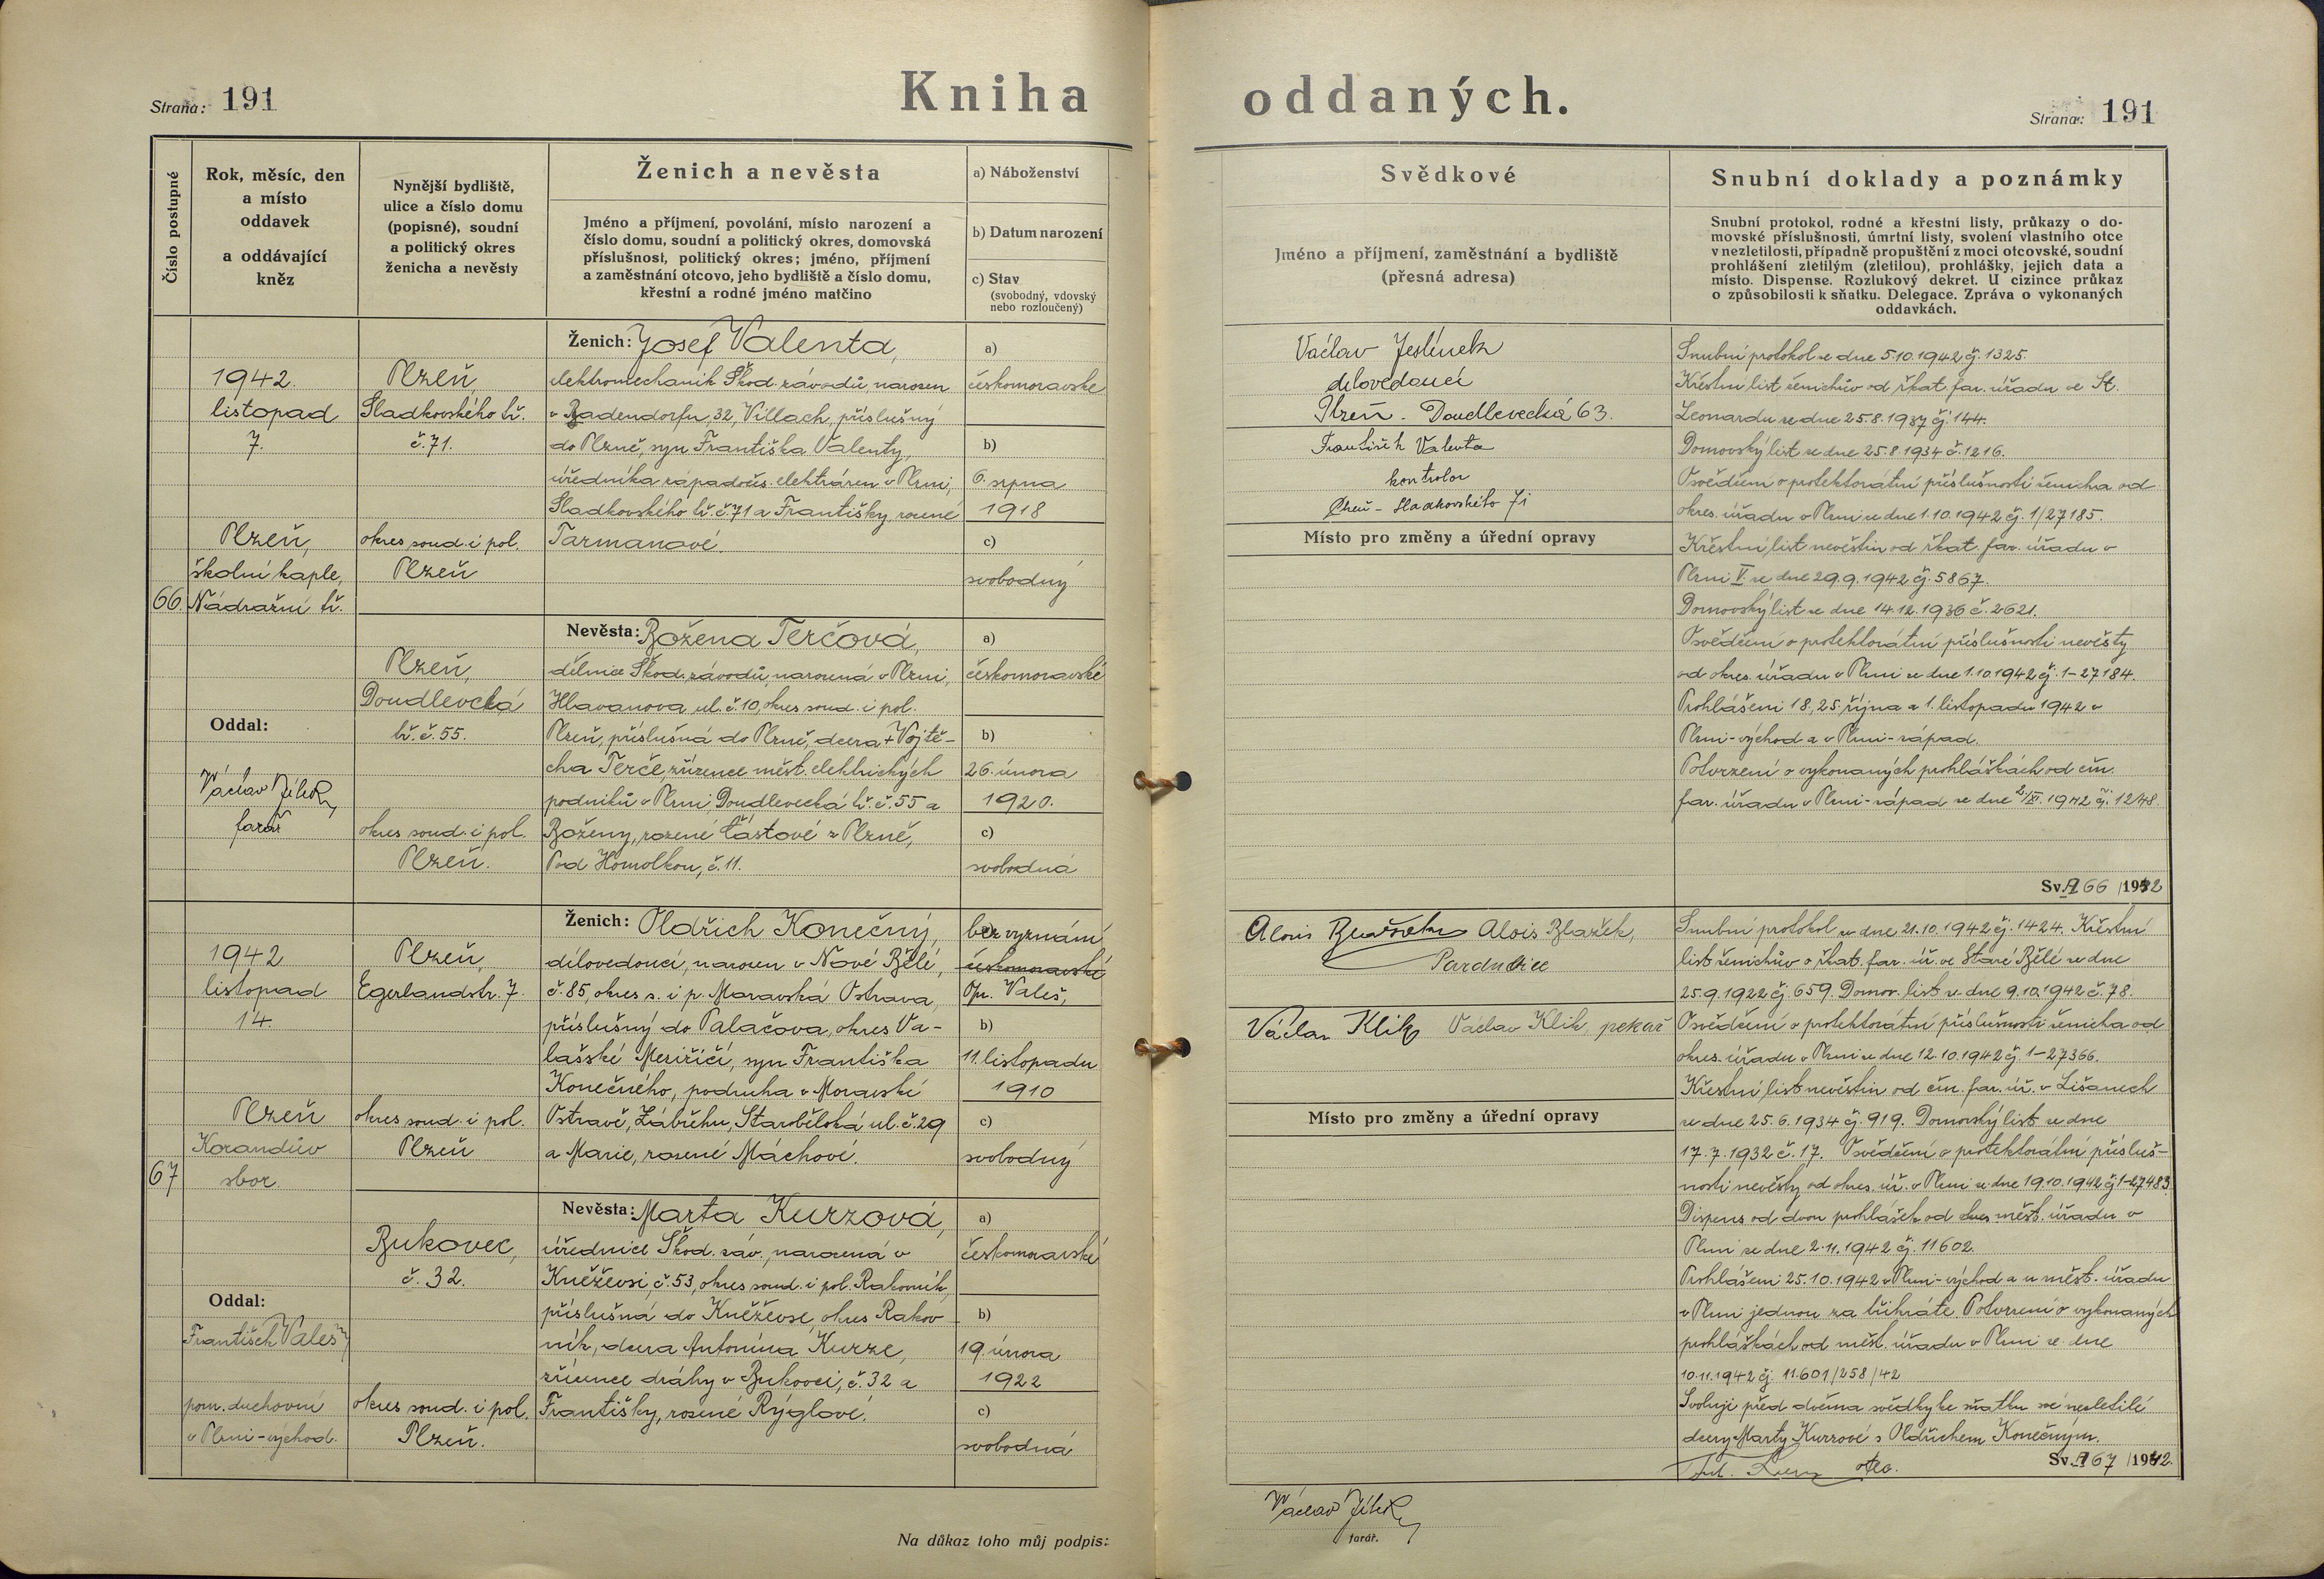 Strana: 191
Kniha oddaných.
Strana: 191
Číslo postupné
Rok, měsíc, den
a místo
oddavek
a oddávající
kněz
Nynější bydliště,
ulice a číslo domu
(popisné), soudní
a politický okres
ženicha a nevěsty
Ženich a nevěsta
Jméno a příjmení, povolání, místo narození a
číslo domu, soudní a politický okres, domovská
příslušnost, politický okres; jméno, příjmení
a zaměstnání otcovo, jeho bydliště a číslo domu,
křestní a rodné jméno matčino
a) Náboženství
b) Datum narození
c) Stav
(svobodný, vdovský
nebo rozloučený)
Svědkové
Jméno a příjmení, zaměstnání a bydliště
(přesná adresa)
Snubní doklady a poznámky
Snubní protokol, rodné a křestní listy, průkazy o do-
movské příslušnosti, úmrtní listy, svolení vlastního otce
v nezletilosti, případně propuštění z moci otcovské, soudní
prohlášení zletilým (zletilou), prohlášky, jejich data a
místo. Dispense. Rozlukový dekret. U cizince průkaz
o způsobilosti k sňatku. Delegace. Zpráva o vykonaných
oddavkách.
66.
1942.
listopad
7.
Plzeň,
školní kaple,
Nádražní tř.
Oddal:
Václav Jílek
farář
Plzeň,
Sladkovského tř.
č. 71.
okres soud. i pol.
Plzeň
Ženich: Josef Valenta,
elektromechanik Škod. závodů, narozen
v Badendorfu, 32, Villach, příslušný
do Plzně, syn Františka Valenty,
úředníka západočes. elektráren v Plzni,
Sladkovského tř. č. 71 a Františky, rozené
Tarmanové.
a)
českomoravské
b)
6. srpna
1918
c)
svobodný
Plzeň,
Doudlevecká
tř. č. 55.
okres soud. i pol.
Plzeň.
Nevěsta: Božena Terčová,
dělnice Škod. závodů, narozená v Plzni,
Hlavanova ul. č. 10, okres soud. i pol.
Plzeň, příslušná do Plzně, dcera + Vojtě-
cha Terče, zřízence měst. elektrických
podniků v Plzni, Doudlevecká tř. č. 55 a
Boženy, rozené Částové z Plzně,
Pod Homolkou, č. 11.
a)
českomoravské
b)
26. února
1920.
c)
svobodná
Václav Jeslínek
dílovedoucí
Plzeň - Doudlevecká 63.
František Valenta
kontrolor
Plzeň - Sladkovského 71
Místo pro změny a úřední opravy
Snubní protokol ze dne 5.10.1942 čj. 1325.
Křestní list ženichův od řkat. far. úřadu ve St.
Leonardu ze dne 25.8.1937 čj. 144.
Domovský list ze dne 25.8.1934 č. 1216.
Osvědčení o protektorátní příslušnosti ženicha od
okres. úřadu v Plzni ze dne 1.10.1942 čj. 1/27185.
Křestní list nevěstin od řkat. far. úřadu v
Plzni V. ze dne 29.9.1942 čj. 5867.
Domovský list ze dne 14.12.1936 č. 2621.
Osvědčení o protektorátní příslušnosti nevěsty
od okres. úřadu v Plzni ze dne 1.10.1942 čj. 1-27184.
Prohlášeni 18., 25. října a 1. listopadu 1942 v
Plzni-východ a v Plzni-západ.
Potvrzení o vykonaných prohláškách od čm.
far. úřadu v Plzni-západ ze dne 2./XI. 1942 čj. 1248.
Sv. A 66 /1942
67
1942
listopad
14.
Plzeň
Korandův
sbor.
Oddal:
František Valeš
pom. duchovní
v Plzni-východ.
Plzeň,
Egerlandstr. 7.
okres soud. i pol.
Plzeň
Ženich: Oldřich Konečný,
dílovedoucí, narozen v Nové Bělé,
č. 85, okres s. i p. Moravská Ostrava,
příslušný do Palačova, okres Va-
lašské Meziříčí, syn Františka
Konečného, podruha v Moravské
Ostravě, Zábřehu, Starobělská ul. č. 29
a Marie, rozené Máchové.
bez vyznání
českomoravské
Opr. Valeš,
b)
11. listopadu
1910
c)
svobodný
Bukovec,
č. 32.
okres soud. i pol.
Plzeň.
Nevěsta: Marta Kurzová,
úřednice Škod. záv., narozená v
Kněževsi, č. 53, okres soud. i pol. Rakovník,
příslušná do Kněževse, okres Rakov-
ník, dcera Antonína Kurze,
zřízence dráhy v Bukovci, č. 32 a
Františky, rozené Rýglové.
a)
českomoravské
b)
19. února
1922
c)
svobodná
Alois Blažek, Pardubice
Václav Klik Václav Klik, pekař
Místo pro změny a úřední opravy
Snubní protokol ze dne 21.10.1942 čj. 1424. Křestní
list ženichův o řkat. far. úř. ve Staré Bělé ze dne
25.9.1922 čj. 659. Domov. list ze dne 9.10.1942 č. 78.
Osvědčení o protektorátní příslušnosti ženicha od
okres. úřadu v Plzni ze dne 12.10.1942 čj. 1-27366.
Křestní list nevěstin od čm. far. úř. v Lišanech
ze dne 25.6.1934 čj. 919. Domovský list ze dne
17.7.1932 č. 17. Osvědčení o protektorátní přísluš-
nosti nevěsty od okres. úř. v Plzni ze dne 19.10.1942 čj. 1-27483
Dispens od dvou prohlášek od měst. úřadu v
Plzni ze dne 2.11.1942 čj. 11602.
Prohlášeni 25.10.1942 v Plzni-východ a u měst. úřadu
v Plzni jednou za třikráte. Potvrzení o vykonaných
prohláškách od měst. úřadu v Plzni ze dne
10.11.1942 čj. 11.601/258/42
Svoluji před dvěma svědky ke sňatku své nezletilé
dcery Marty Kurzové s Oldřichem Konečným.
Sv. A 67 /1942.
Na důkaz toho můj podpis:
Václav Jílek
farář.